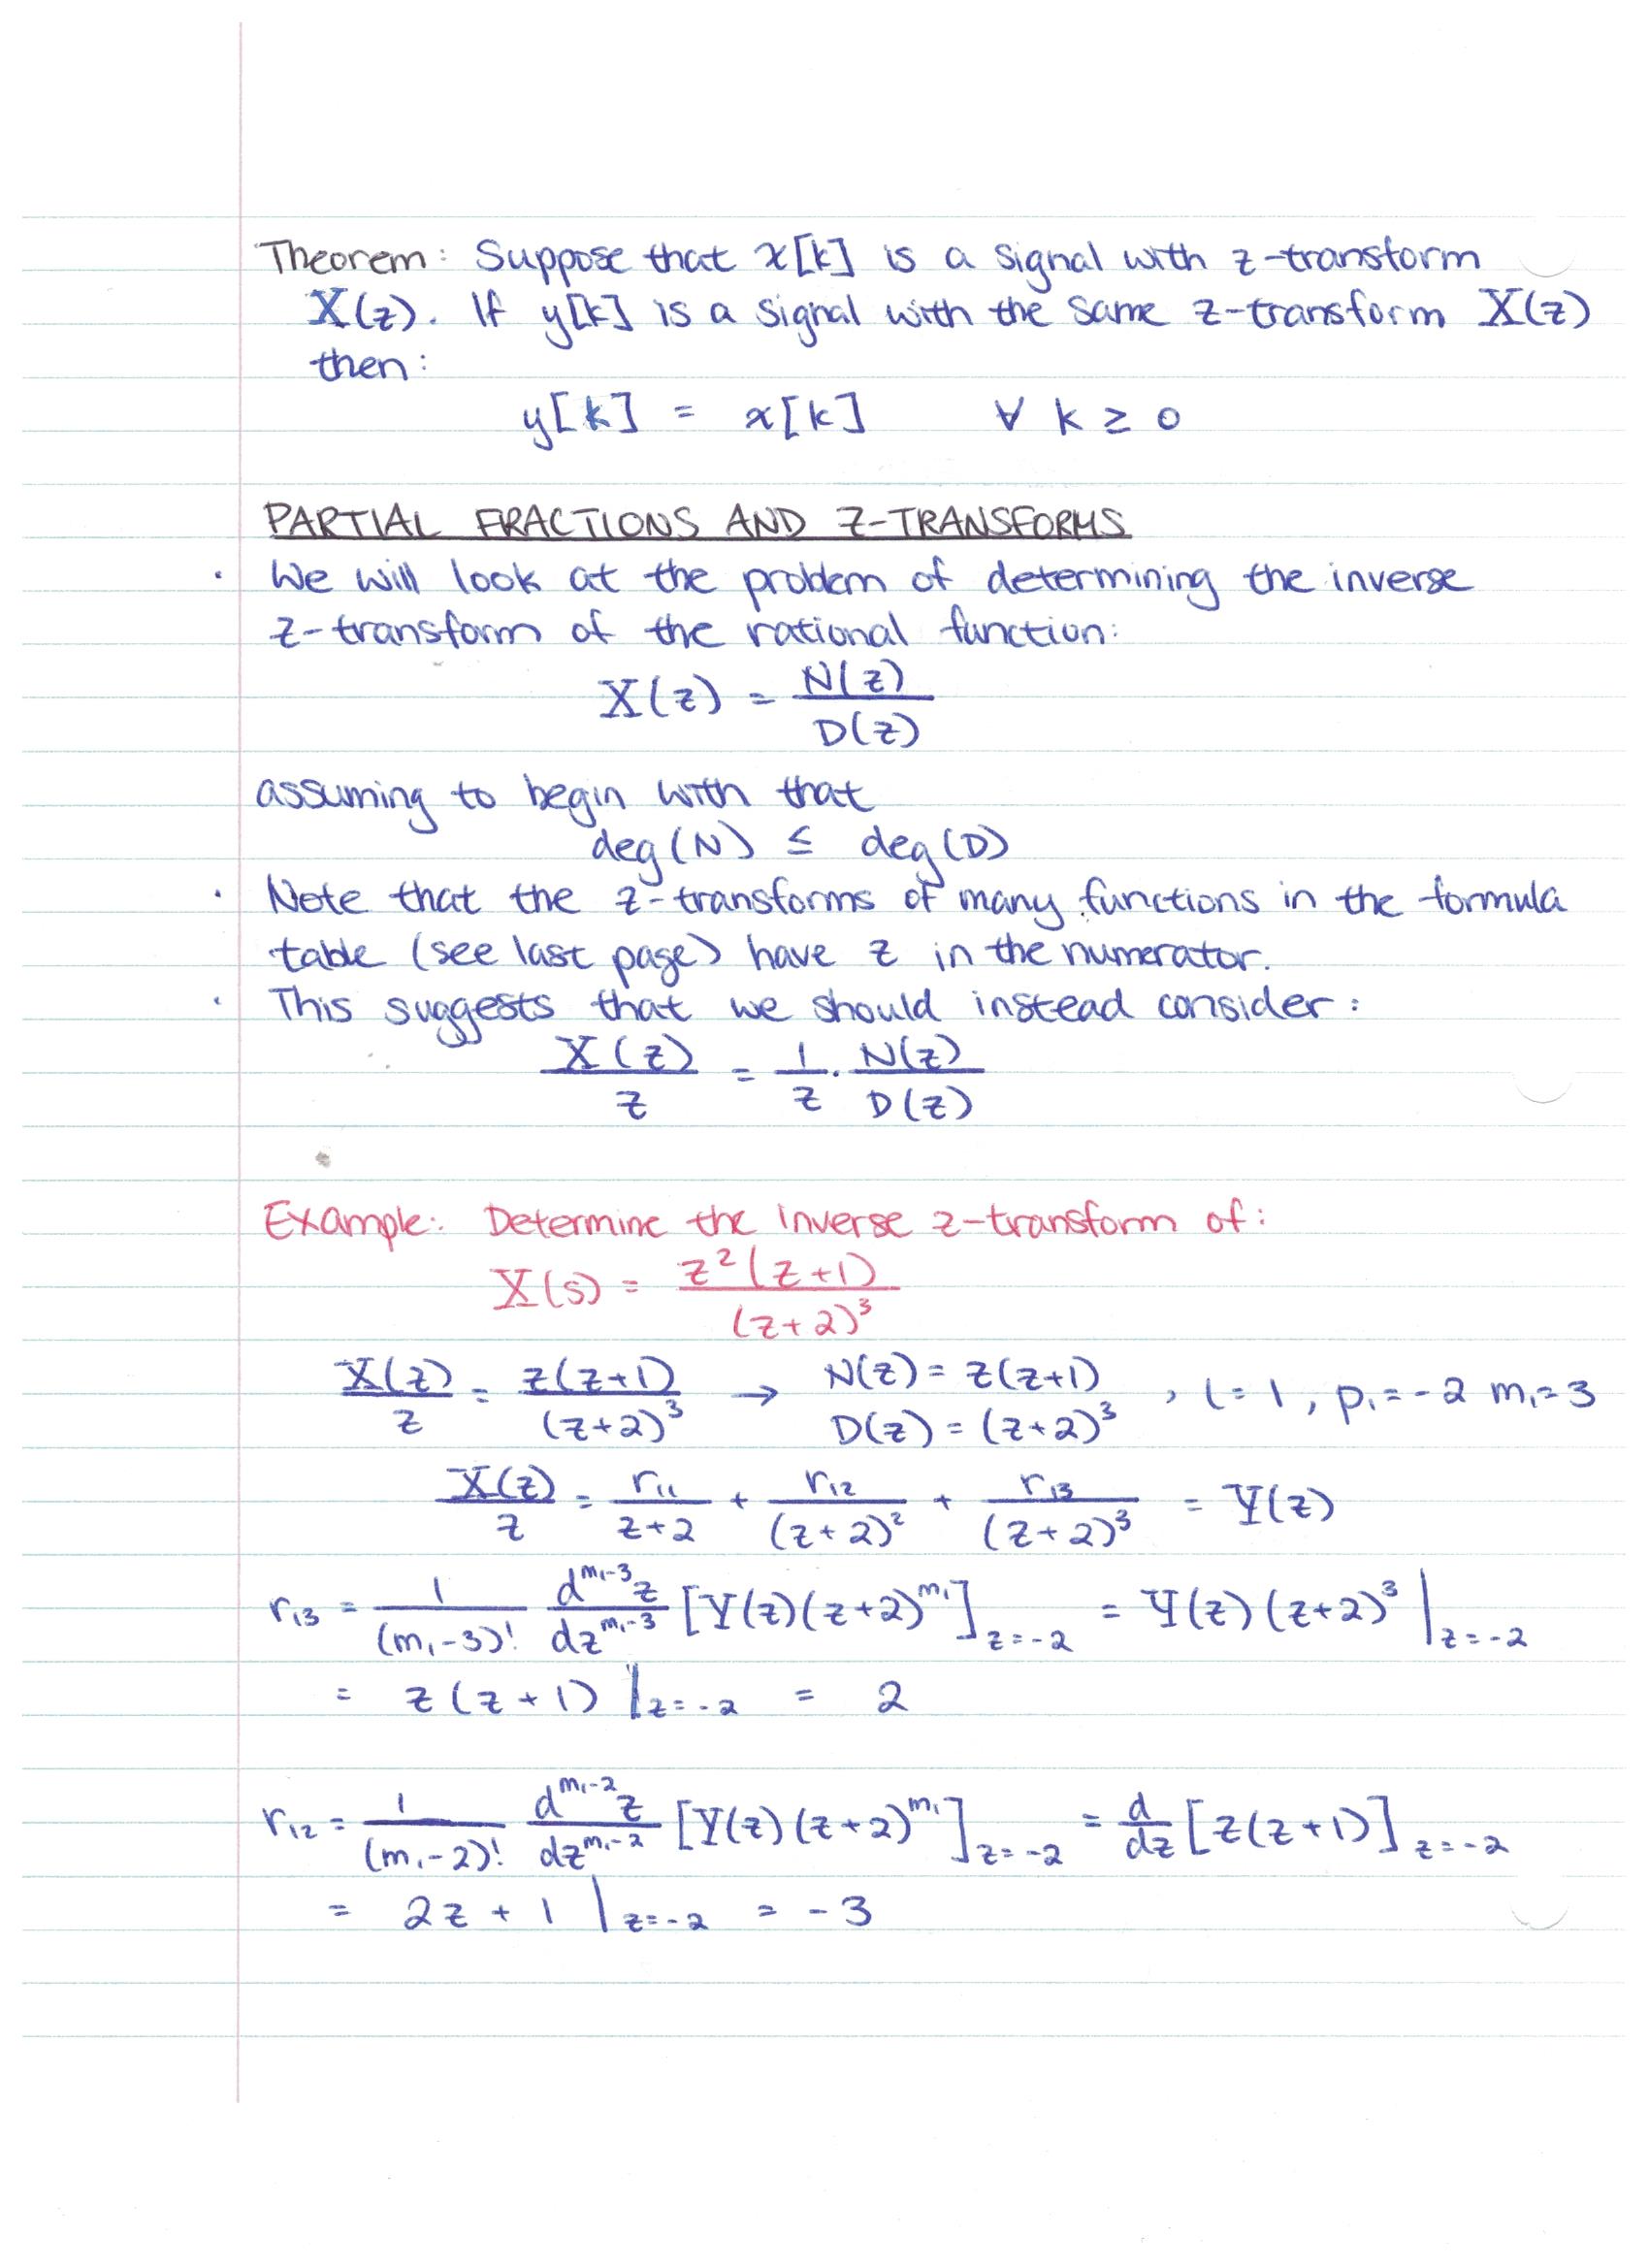 Theorem: Suppose that x[k] is a signal with z-transform
X(z). If y[k] is a signal with the same z-transform X(z)
then:
y[k] = x[k] ∀ k ≥ 0
PARTIAL FRACTIONS AND Z-TRANSFORMS
· We will look at the problem of determining the inverse
z-transform of the rational function:
X(z) = N(z)/D(z)
assuming to begin with that
deg(N) ≤ deg(D)
· Note that the z-transforms of many functions in the formula
table (see last page) have z in the numerator.
· This suggests that we should instead consider:
X(z)/z = 1/z · N(z)/D(z)
Example: Determine the inverse z-transform of:
X(s) = z²(z+1)/(z+2)³
X(z)/z = z(z+1)/(z+2)³ → N(z) = z(z+1) D(z) = (z+2)³ , l=1, p₁=-2 m₁=3
X(z)/z = r₁₁/(z+2) + r₁₂/(z+2)² + r₁₃/(z+2)³ = Y(z)
r₁₃ = 1/(m₁-3)! d^(m₁-3)z/dz^(m₁-3) [Y(z)(z+2)^m₁]z=-2 = Y(z)(z+2)³|z=-2
= z(z+1)|z=-2 = 2
r₁₂ = 1/(m₁-2)! d^(m₁-2)z/dz^(m₁-2) [Y(z)(z+2)^m₁]z=-2 = d/dz [z(z+1)]z=-2
= 2z + 1|z=-2 = -3